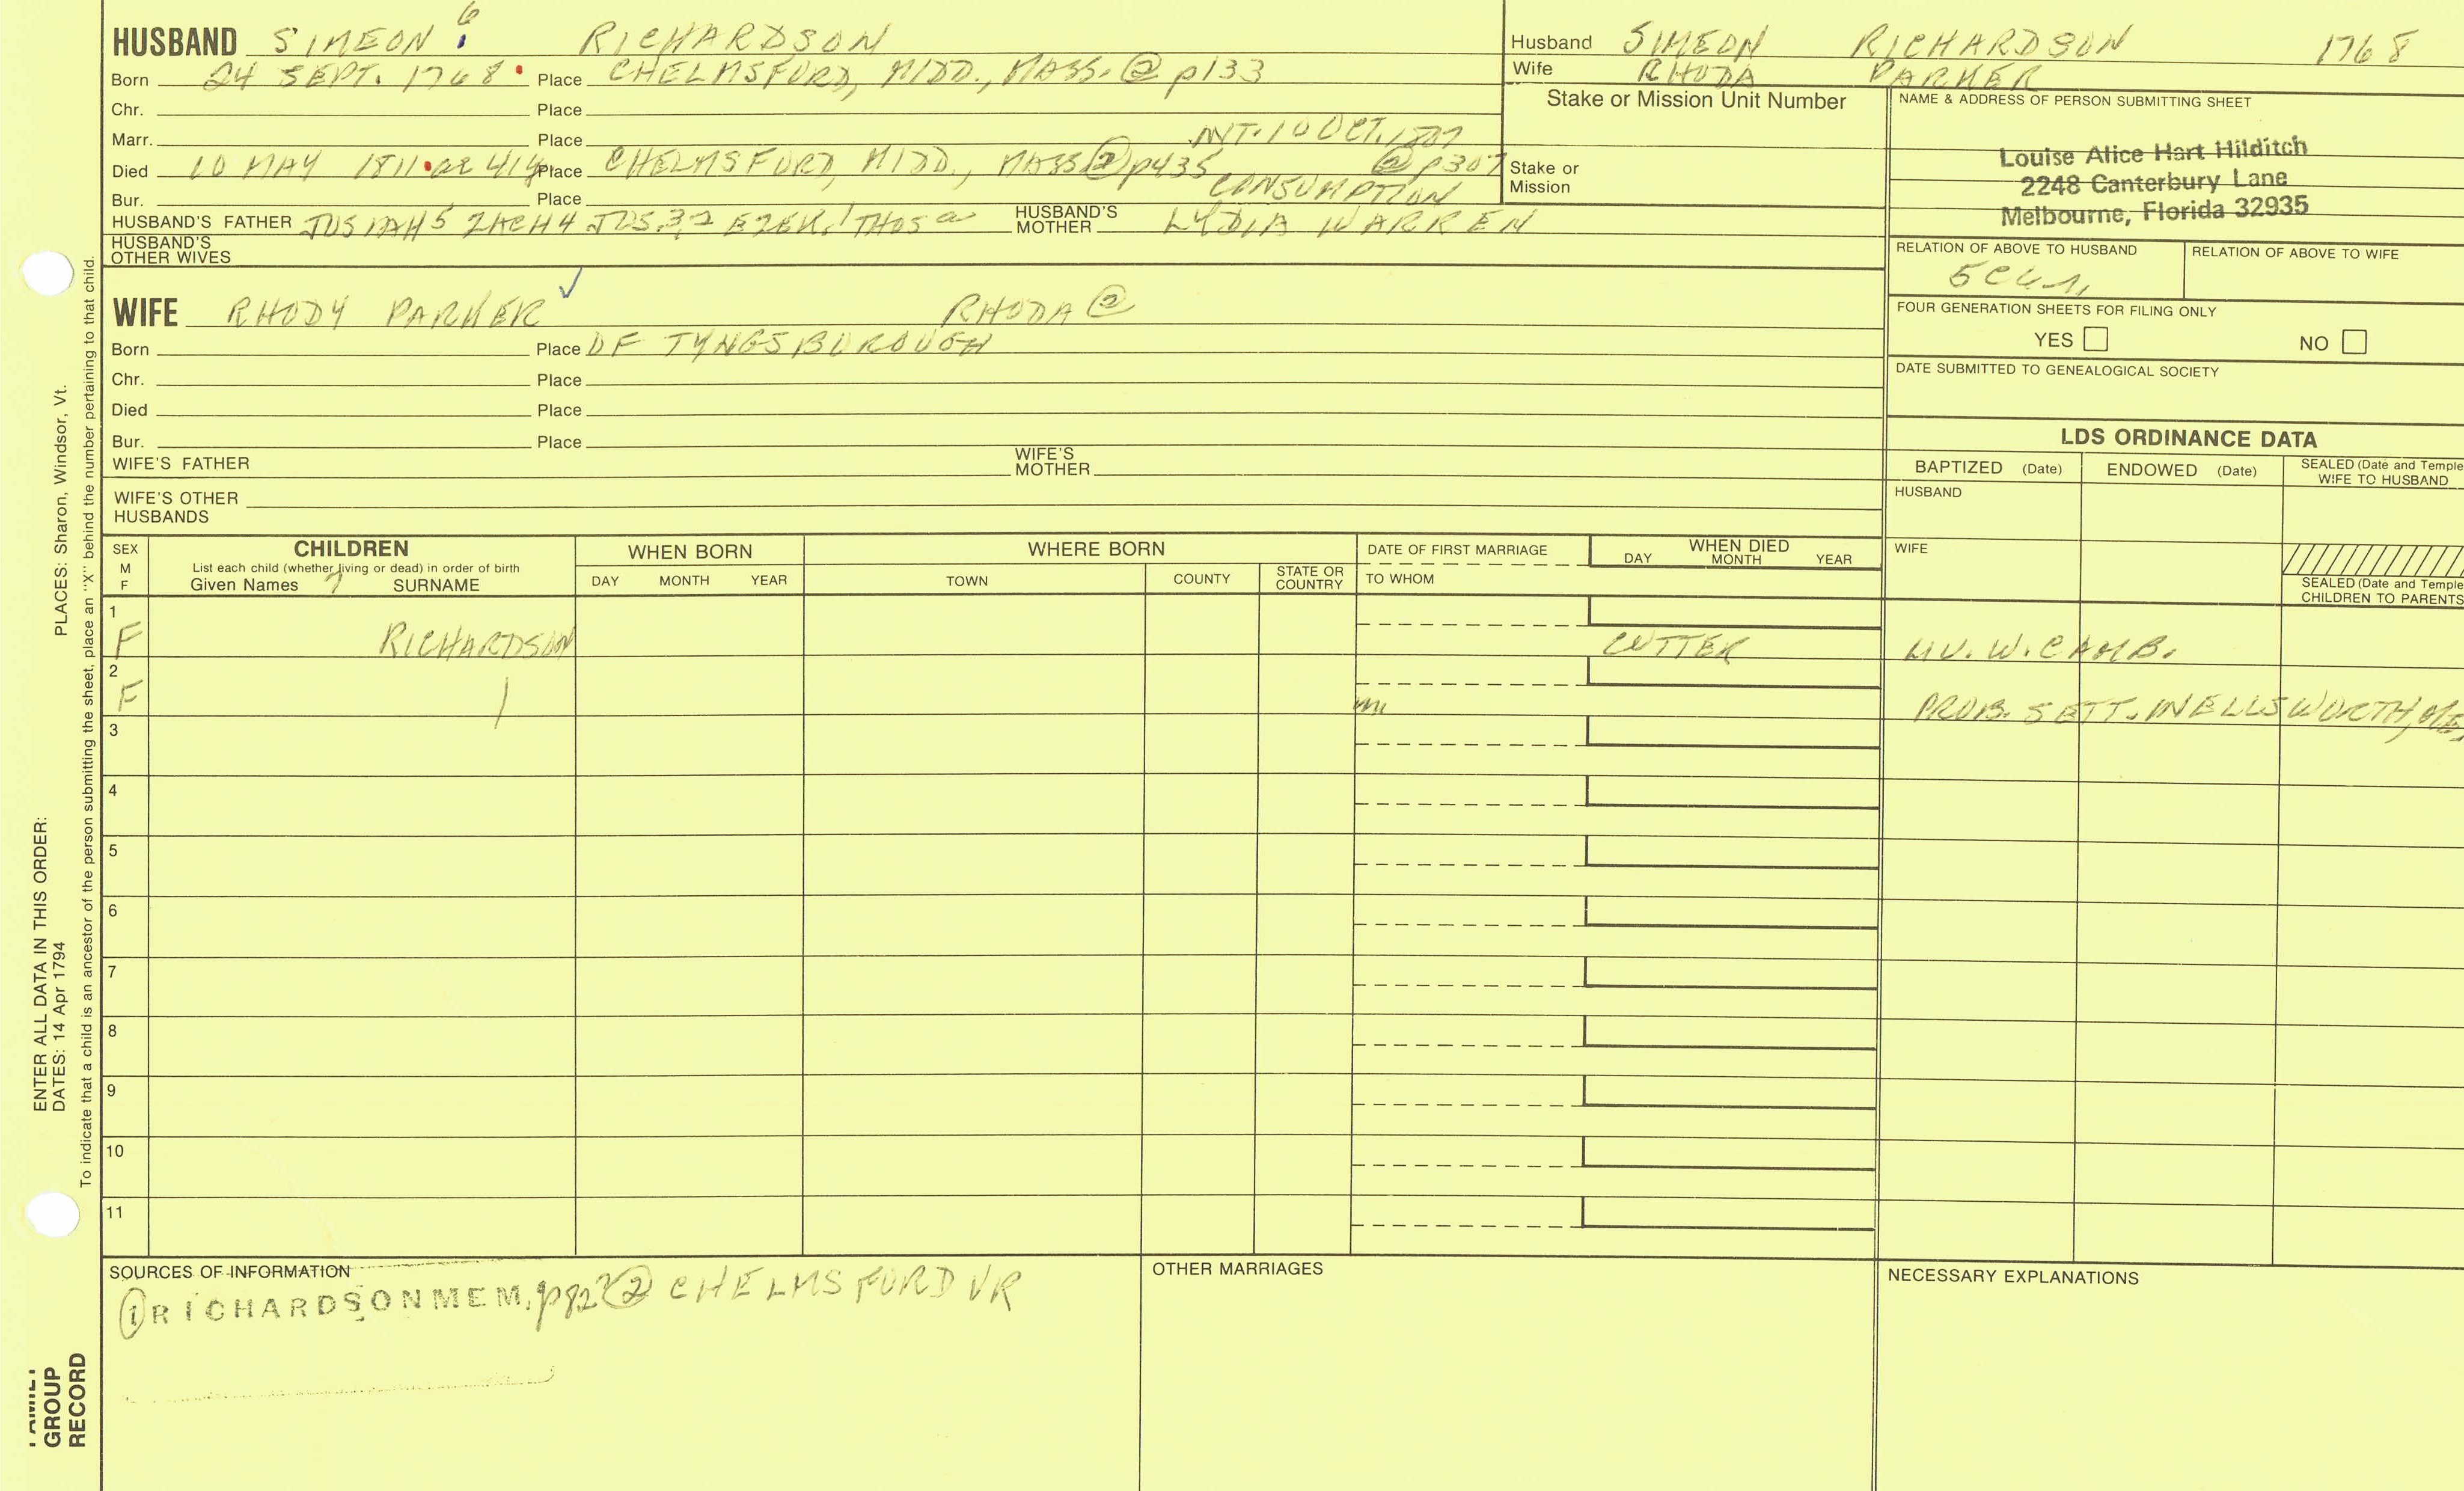 HUSBAND SIMEON 6 RICHARDSON
Born 24 SEPT. 1768 Place CHELMSFORD, MIDD., MASS. @ p133
Chr. Place
Marr. Place INT. 10 OCT. 1807 @ p307
Died 10 MAY 1811 ae 41y Place CHELMSFORD, MIDD., MASS @ p435 CONSUMPTION
Bur. Place
HUSBAND'S FATHER JOSIAH 5 ZACH 4 JOS. 3, 2 EZEK. 1 THOS a HUSBAND'S MOTHER LYDIA WARREN
HUSBAND'S OTHER WIVES
WIFE RHODY PARKER ✓ RHODA ②
Born Place OF TYNGSBOROUGH
Chr. Place
Died Place
Bur. Place
WIFE'S FATHER WIFE'S MOTHER
WIFE'S OTHER HUSBANDS
Husband SIMEON RICHARDSON 1768
Wife RHODA PARKER
Stake or Mission Unit Number
Stake or Mission
NAME & ADDRESS OF PERSON SUBMITTING SHEET
Louise Alice Hart Hilditch
2248 Canterbury Lane
Melbourne, Florida 32935
RELATION OF ABOVE TO HUSBAND RELATION OF ABOVE TO WIFE
FOUR GENERATION SHEETS FOR FILING ONLY
YES NO
DATE SUBMITTED TO GENEALOGICAL SOCIETY
LDS ORDINANCE DATA
BAPTIZED (Date) ENDOWED (Date) SEALED (Date and Temple
WIFE TO HUSBAND
HUSBAND
WIFE
SEALED (Date and Temple
CHILDREN TO PARENTS
SEX M F CHILDREN
List each child (whether living or dead) in order of birth
Given Names ? SURNAME
WHEN BORN
DAY MONTH YEAR
WHERE BORN
TOWN COUNTY STATE OR COUNTRY
DATE OF FIRST MARRIAGE
TO WHOM
WHEN DIED
DAY MONTH YEAR
1 F RICHARDSON CUTTER LIV. W. CAMB.
2 F PROB. SETT. IN ELLSWORTH, ME,
3
4
5
6
7
8
9
10
11
SOURCES OF INFORMATION
① RICHARDSON MEM. p82 ② CHELMSFORD VR
OTHER MARRIAGES
NECESSARY EXPLANATIONS
PLACES: Sharon, Windsor, Vt.
To indicate that a child is an ancestor of the person submitting the sheet, place an "X" behind the number pertaining to that child.
ENTER ALL DATA IN THIS ORDER:
DATES: 14 Apr 1794
FAMILY
GROUP
RECORD